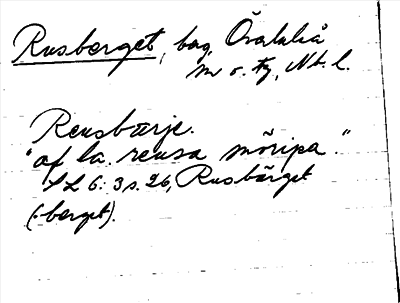 Rusberget, bag, Övaluliå
n. o. ty, Nb. l.
Reusbærje.
"af la. reusa möripa."
SL 6: 3 s. 26, Rusbärget
(-berget).